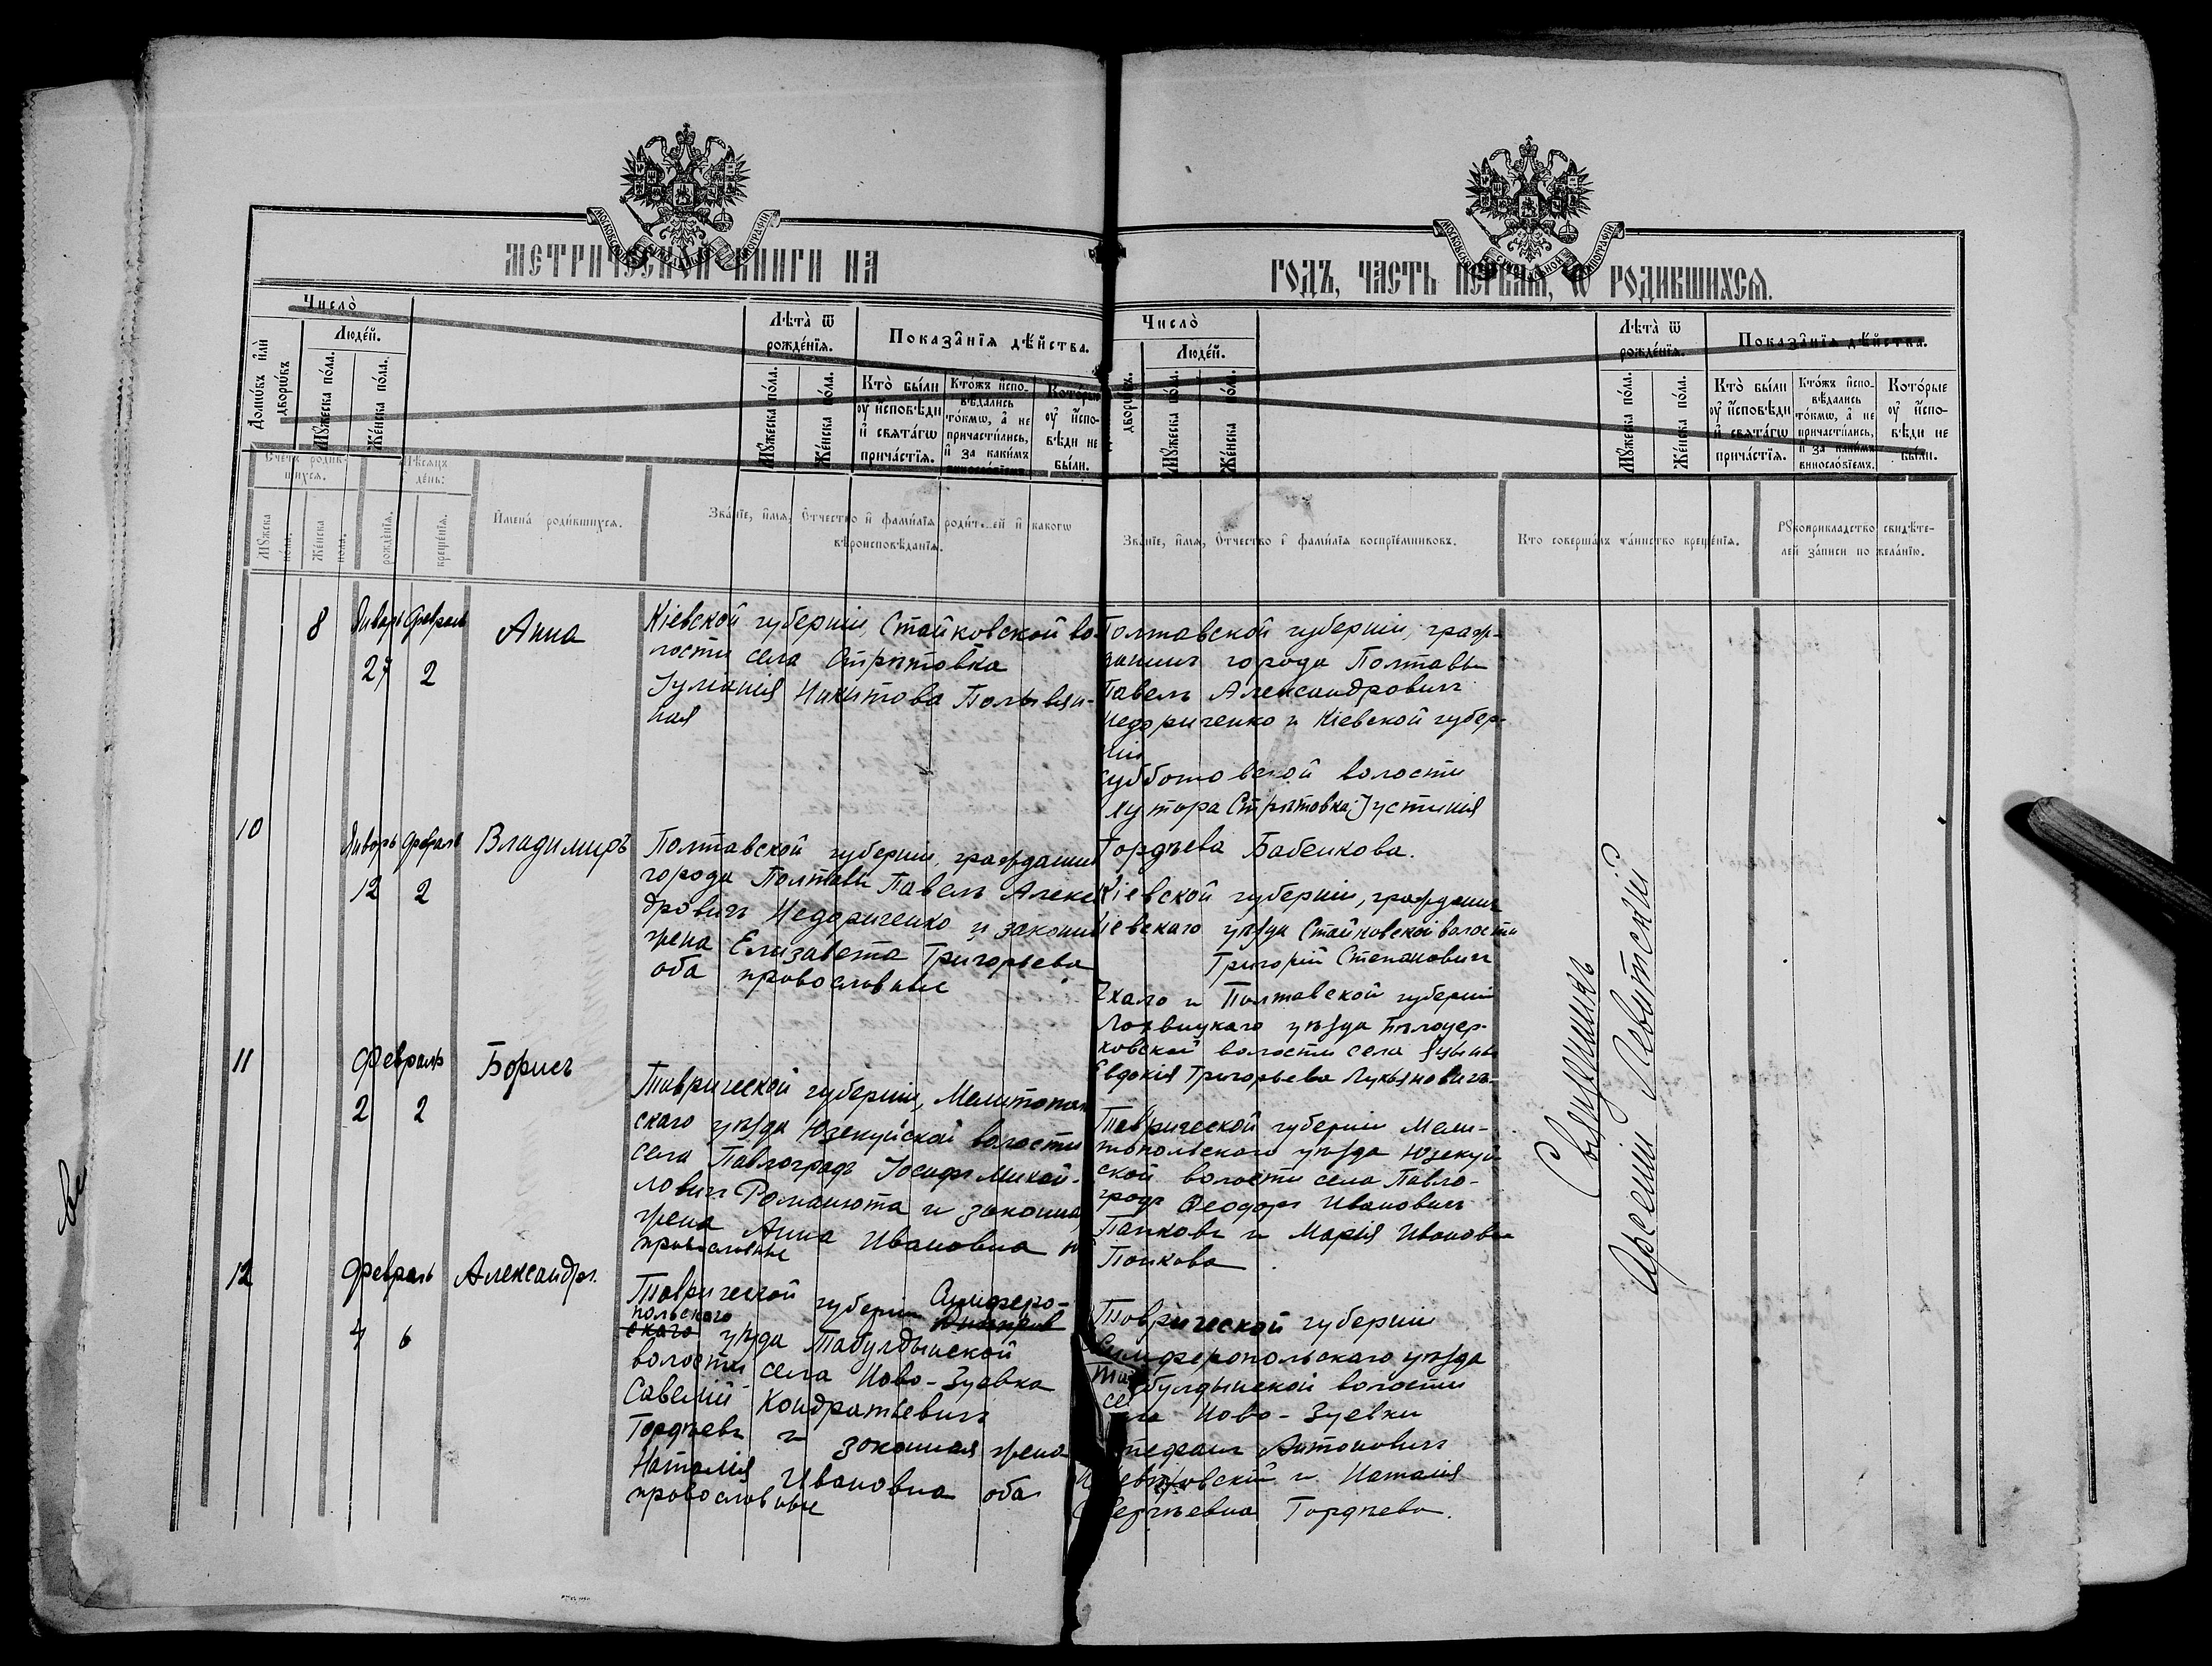 МЕТРИЧЕСКОЙ КНИГИ НА
ГОДЪ, ЧАСТЬ ПЕРВАЯ, Ѡ РОДИВШИХСЯ.
Число̀
Людéй.
Мꙋ́жеска по́ла.
Же́нска по́ла.
Лѣ́та ѿ
рождéнїѧ.
Мꙋ́жеска по́ла.
Же́нска по́ла.
Показа̑нїѧ дѣ́йства.
Кто̀ бы́ли
ᲂу҆ и҆́сповѣди
и҆ свѧта́гѡ
прича́стїѧ.
Кто́жъ и҆спо-
вѣ́дались
то́кмѡ, а҆ не
причасти́лись,
и҆ за каки́мъ
виносло́вїемъ.
Кото́рые
ᲂу҆ и҆́спо-
вѣди не
бы́ли.
Число̀
Людéй.
дворѡ́въ.
Мꙋ́жеска по́ла.
Же́нска по́ла.
Лѣ́та ѿ
рождéнїѧ.
Мꙋ́жеска по́ла.
Же́нска по́ла.
Показа̑нїѧ дѣ́йства.
Кто̀ бы́ли
ᲂу҆ и҆́сповѣди
и҆ свѧта́гѡ
прича́стїѧ.
Кто́жъ и҆спо-
вѣ́дались
то́кмѡ, а҆ не
причасти́лись,
и҆ за каки́мъ
виносло́вїемъ.
Кото́рые
ᲂу҆ и҆́спо-
вѣди не
бы́ли.
Счетъ родив-
шихся.
Мѣсяцъ
день:
рожденія.
крещенія.
Имена родившихся.
Званіе, имя, отчество и фамилія родителей и какого
вѣроисповѣданія.
Званіе, имя, отчество и фамилія воспріемниковъ.
Кто совершалъ таинство крещенія.
Рукоприкладство свидѣте-
лей записи по желанію.
8
Январь Февраль
27 2
Анна
Кіевской губерніи, Стайковской во-
лости села Стрѣтовка
Іуліанія Никитова
ная
Полтавской губерніи, граж-
данинъ города Полтавы
Павелъ Александровичъ
Недориченко и Кіевской губер-
ніи
Субботовской волости
хутора Стрѣтовка Іустинія
Гордѣева Бабенкова.
10
Январь Февраль
12 2
Владимиръ
Полтавской губерніи, гражданинъ
города Полтавы Павелъ Алекс
дровичъ Недориченко и законн
жена Елизавета Григорьева
оба православные
Кіевской губерніи, гражданинъ
Кіевскаго уѣзда Стайковской волости
Григорій Степановичъ
и Полтавской губерніи
Лохвицкаго уѣзда Бѣлоцер-
ковской волости села
Евдокія Григорьева Лукьяновичъ
11
Февраль
2 2
Борисъ
Таврической губерніи, Мелитополь
скаго уѣзда Юзкуйской волости
села Павлоградъ Іосифъ Михай-
ловичъ Романюта и законна
жена Анна Ивановна
православные
Таврической губерніи Мели-
топольскаго уѣзда Юзекуй-
ской волости села Павло-
градъ Ѳеодоръ Ивановичъ
Папковъ и Марія Ивановна
Папкова
12
Февраль
4 6
Александръ
Таврической губерніи Симферо-
польскаго
скаго уѣзда Табулдынской
волости села Ново-Зуевка
Савелій Кондратьевичъ
Гордѣевъ и законная жена
Наталія Ивановна оба
православные
Таврической губерніи
Симферопольскаго уѣзда
Табулдынской волости
села Ново-Зуевки
Стефанъ Антоновичъ
и Наталія
Сергѣевна Гордѣева.
Священникъ
Арсеній Левитскій